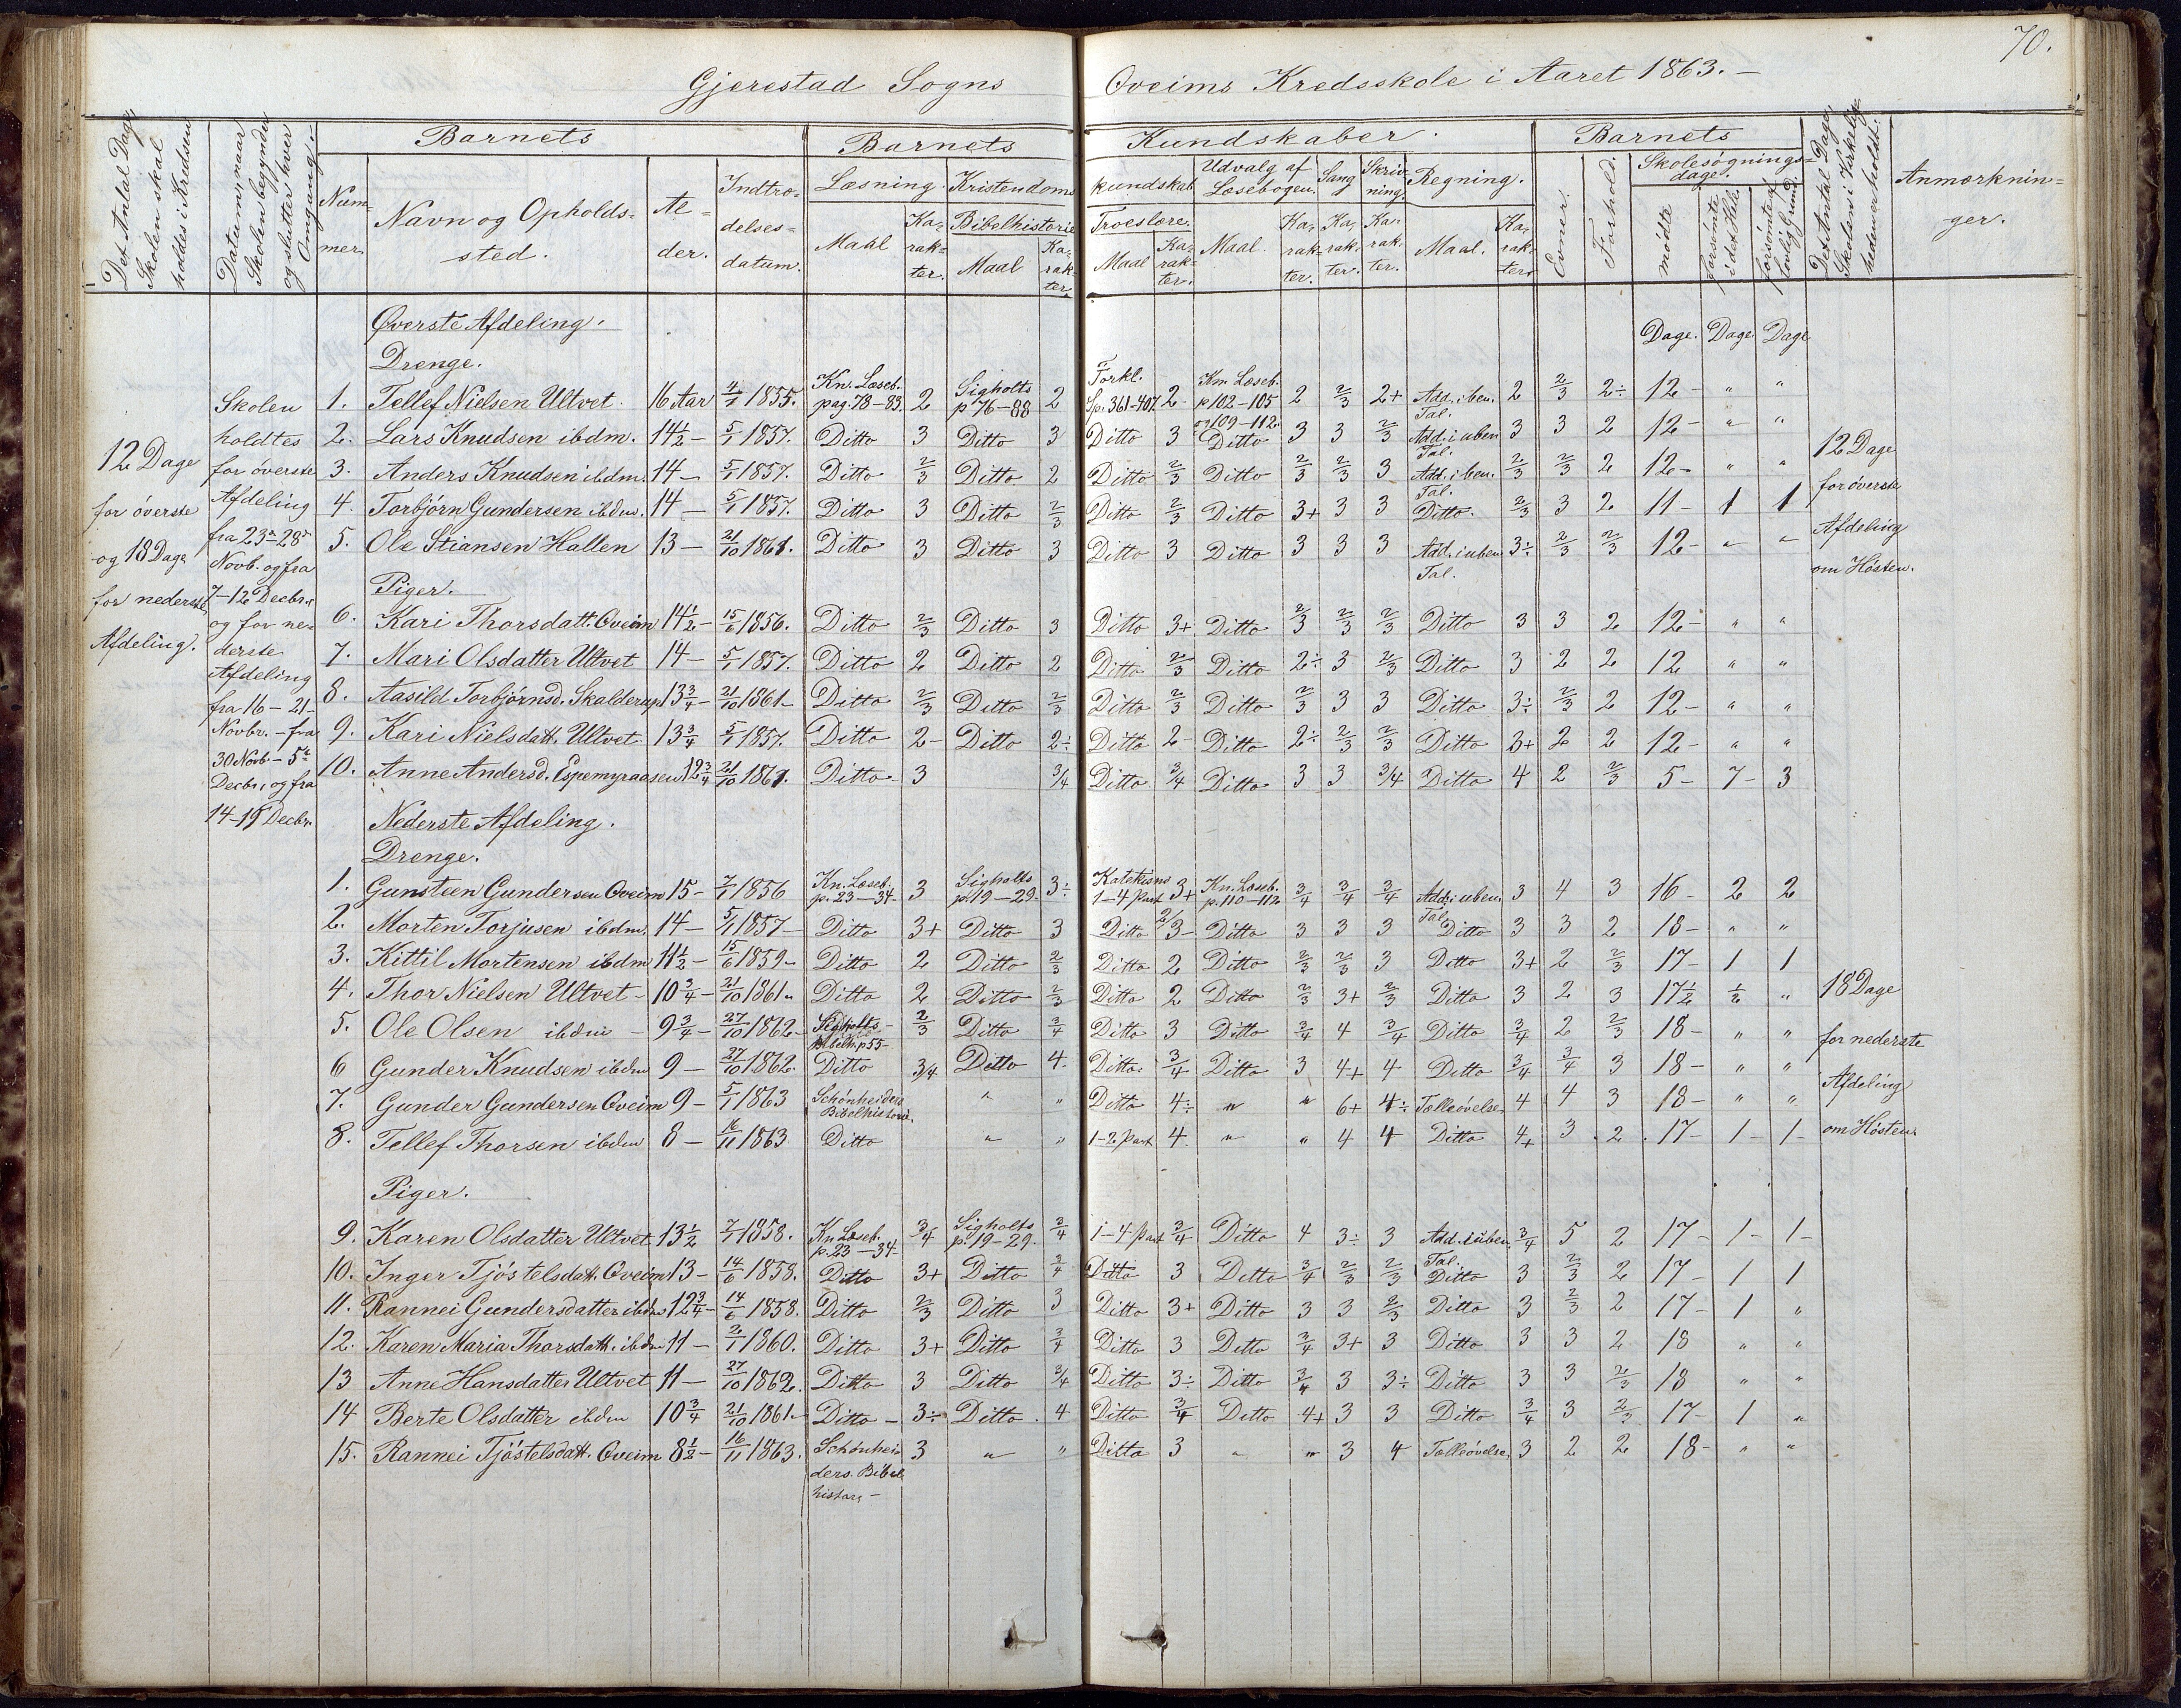 70.
Gjerestad Sogns Oveims Kredsskole i Aaret 1863.-
Det Antal Dage Skolen skal holdes i Kredsen
Datum, naar Skolen begynder og slutter hver Omgang.
Barnets
Nummer.
Navn og Opholdssted.
Alder.
Indtrædelsesdatum.
Barnets Kundskaber.
Læsning. Kristendomskundskab
Maal Karakter.
Bibelhistorie Maal Karakter
Troeslære. Maal Karakter.
Udvalg af Læsebogen. Maal. Karakter.
Sang Karakter.
Skrivning. Karakter.
Regning. Maal. Karakter.
Barnets
Evner. Forhold.
Skolesøgningsdage.
mødte forsømte i det Hele. forsømte af lovlig Grund.
Det Antal Dage Skolen i Virkeligheden er holdt.
Anmærkninger.
12 Dage for øverste og 18 Dage for nederste Afdeling.
Skolen holdtes for øverste Afdeling fra 23de-28de Novb. og fra 7-12 Decbr. og for nederste Afdeling fra 16-21 Novbr. - fra 30 Novb - 5te Decbr., og fra 14-19 Decbr.
Øverste Afdeling.
Dage. Dage Dage
Drenge.
1. Tellef Nielsen Ultvet. 16 Aar 4/1 1855. Kn. Læseb. pag. 78-83. 2 Sigholts p 76-88 2 Forkl. Sp. 361-407. 2- Kn. Læseb. p 102-105 og 109-112. 2 2/3 2+ Add. i ben. Tal. 2 2/3 2÷ 12- " "
2. Lars Knudsen ibdm. 14½- 5/1 1857. Ditto 3 Ditto 3 Ditto 3 Ditto 3 3 2/3 Add. i uben Tal. 3 3 2 12- " "
3. Anders Knudsen ibdm. 14- 5/1 1857. Ditto 2/3 Ditto 2 Ditto 2/3 Ditto 2/3 2/3 3 Add. i ben. Tal. 2/3 2/3 2 12- " "
4. Torbjørn Gundersen ibdm. 14- 5/1 1857. Ditto 3 Ditto 2/3 Ditto 2/3 Ditto 3+ 3 3 Ditto. 2/3 3 2 11- 1 1
5. Ole Stiansen Hallen 13- 21/10 1861. Ditto 3 Ditto 3 Ditto 3 Ditto 3 3 3 Add. i uben Tal. 3÷ 2/3 2/3 12- " "
12 Dage for øverste Afdeling om Høsten.
Piger.
6. Kari Thorsdatt. Oveim 14½- 15/6 1856. Ditto 2/3 Ditto 3 Ditto 3+ Ditto 2/3 2/3 2/3 Ditto 3 3 2 12- " "
7. Mari Olsdatter Ultvet 14- 5/1 1857. Ditto 2 Ditto 2 Ditto 2/3 Ditto 2÷ 3 2/3 Ditto 3 2 2 12 " "
8. Aasild Torbjørnsd. Skalderup 13¾- 21/10 1861- Ditto 2/3 Ditto 2/3 Ditto 2/3 Ditto 2/3 3 3 Ditto 3÷ 2/3 2 12- " "
9. Kari Nielsdatt. Ultvet. 13¾ 5/1 1857. Ditto 2- Ditto 2÷ Ditto 2- Ditto 2÷ 2/3 2/3 Ditto 3+ 2 2 12- " "
10. Anne Andersd. Espemyraasen 12¾ 21/10 1861. Ditto 3 3/4 Ditto 3/4 Ditto 3 3 3/4 Ditto 4 2 2/3 5- 7- 3
Nederste Afdeling.
Drenge.
1. Gunsteen Gundersen Oveim 15- 7/1 1856 Kn. Læseb. p. 23-34- 3 Sigholts p. 19-29- 3÷ Katekism 1-4 Part 3+ Kn. Læseb. p. 110-112 3/4 3/4 3/4 Add. i uben Tal. 3 4 3 16- 2 2
2. Morten Torjusen ibdm. 14- 5/1 1857- Ditto 3+ Ditto 3 Ditto 2/3- Ditto 3 3 3 Ditto 3 3 2 18- " "
3. Kittil Mortensen ibdm 11½- 15/6 1859- Ditto 2 Ditto 2/3 Ditto 2 Ditto 2/3 2/3 3 Ditto 3+ 2 2/3 17- 1 1
4. Thor Nielsen Ultvet- 10¾- 21/10 1861- Ditto 2 Ditto 2/3 Ditto 2 Ditto 2/3 3+ 2/3 Ditto 3 2 3 17½ ½ "
5. Ole Olsen ibdm - 9¾- 27/10 1862- Sigholts Bibelh. p 55- 2/3 Ditto 3/4 Ditto 3 Ditto 3/4 4 3/4 Ditto 3/4 2 2/3 18- " "
6 Gunder Knudsen ibdm 9- 27/10 1862. Ditto 3/4 Ditto 4- Ditto 3/4 Ditto 3 4+ 4 Ditto 3/4 3/4 3 18- " "
7. Gunder Gundersen Oveim 9- 5/1 1863 Schønheiders Bibelhistorie. " " Ditto 4÷ " " 6+ 4÷ Tælleøvelse 4 4 3 18- " "
8. Tellef Thorsen ibdm 8- 16/11 1863 Ditto " " 1-2 Part 4. " " 4 4 Ditto 4+ 3 2 17- 1- 1-
18 Dage for nederste Afdeling om Høsten
Piger.
9. Karen Olsdatter Ultvet 13½ 7/1 1858. Kn Læseb. p. 23-34- 3/4 Sigholts p. 19-29. 3/4 1-4 Part 3/4 Ditto 4 3÷ 3 Add. i uben Tal. 3/4 5 2 17- 1- 1-
10. Inger Tjøstelsdatt. Oveim 13- 14/6 1858. Ditto 3+ Ditto 3/4 Ditto 3 Ditto 3/4 2/3 2/3 Ditto 3 2/3 2 17- 1 1
11. Rannei Gundersdatter ibdm 12¾- 14/6 1858. Ditto 2/3 Ditto 3 Ditto 3+ Ditto 3 3 2/3 Ditto 3 2/3 2 17- 1 "
12. Karen Maria Thorsdatt. ibdm 11- 2/1 1860. Ditto 3+ Ditto 3/4 Ditto 3 Ditto 3/4 3+ 3 Ditto 3 3 2 18 " "
13 Anne Hansdatter Ultvet 11- 27/10 1862. Ditto 3 Ditto 3/4 Ditto 3÷ Ditto 3/4 3 3÷ Ditto 3 3 2/3 18 " "
14 Berte Olsdatter ibdm 10¾ 21/10 1861- Ditto- 3÷ Ditto. 4 Ditto 3/4 Ditto 4+ 3 3 Ditto 3/4 3 2/3 17- 1 "
15. Rannei Tjøstelsdatt. Oveim 8½- 16/11 1863. Schønheiders. Bibelhistor,- 3 " " Ditto 3 " " 3 4 Tælleøvelse 3 2 2 18- " "